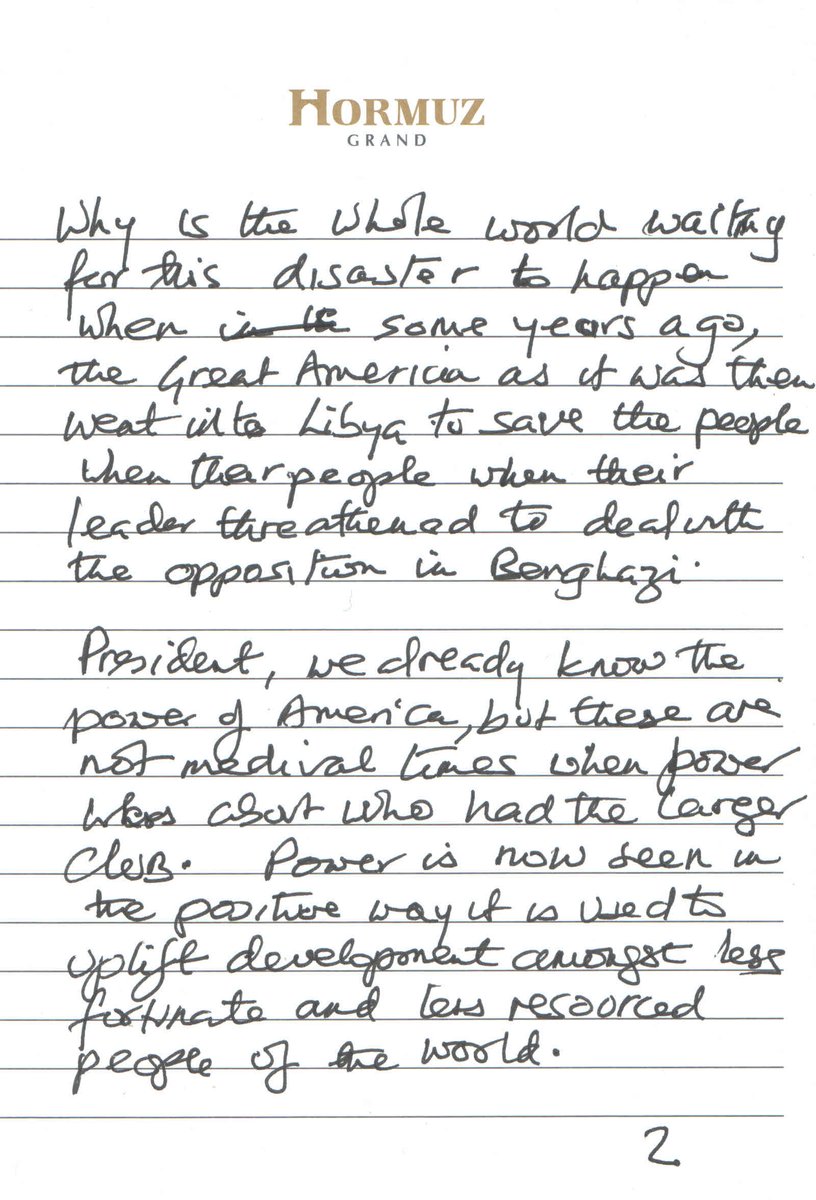 HORMUZ
GRAND
Why is the whole world waiting
for this disaster to happen
when some years ago,
the Great Americia as it was then
went into Libya to save the people
when their people when their
leader threathened to deal with
the opposition in Benghazi.
President, we already know the
power of America, but these are
not medival times when power
was about who had the larger
Club. Power is now seen in
the positive way it is used to
uplift development amongst less
fortunate and less resourced
people of the world.
2